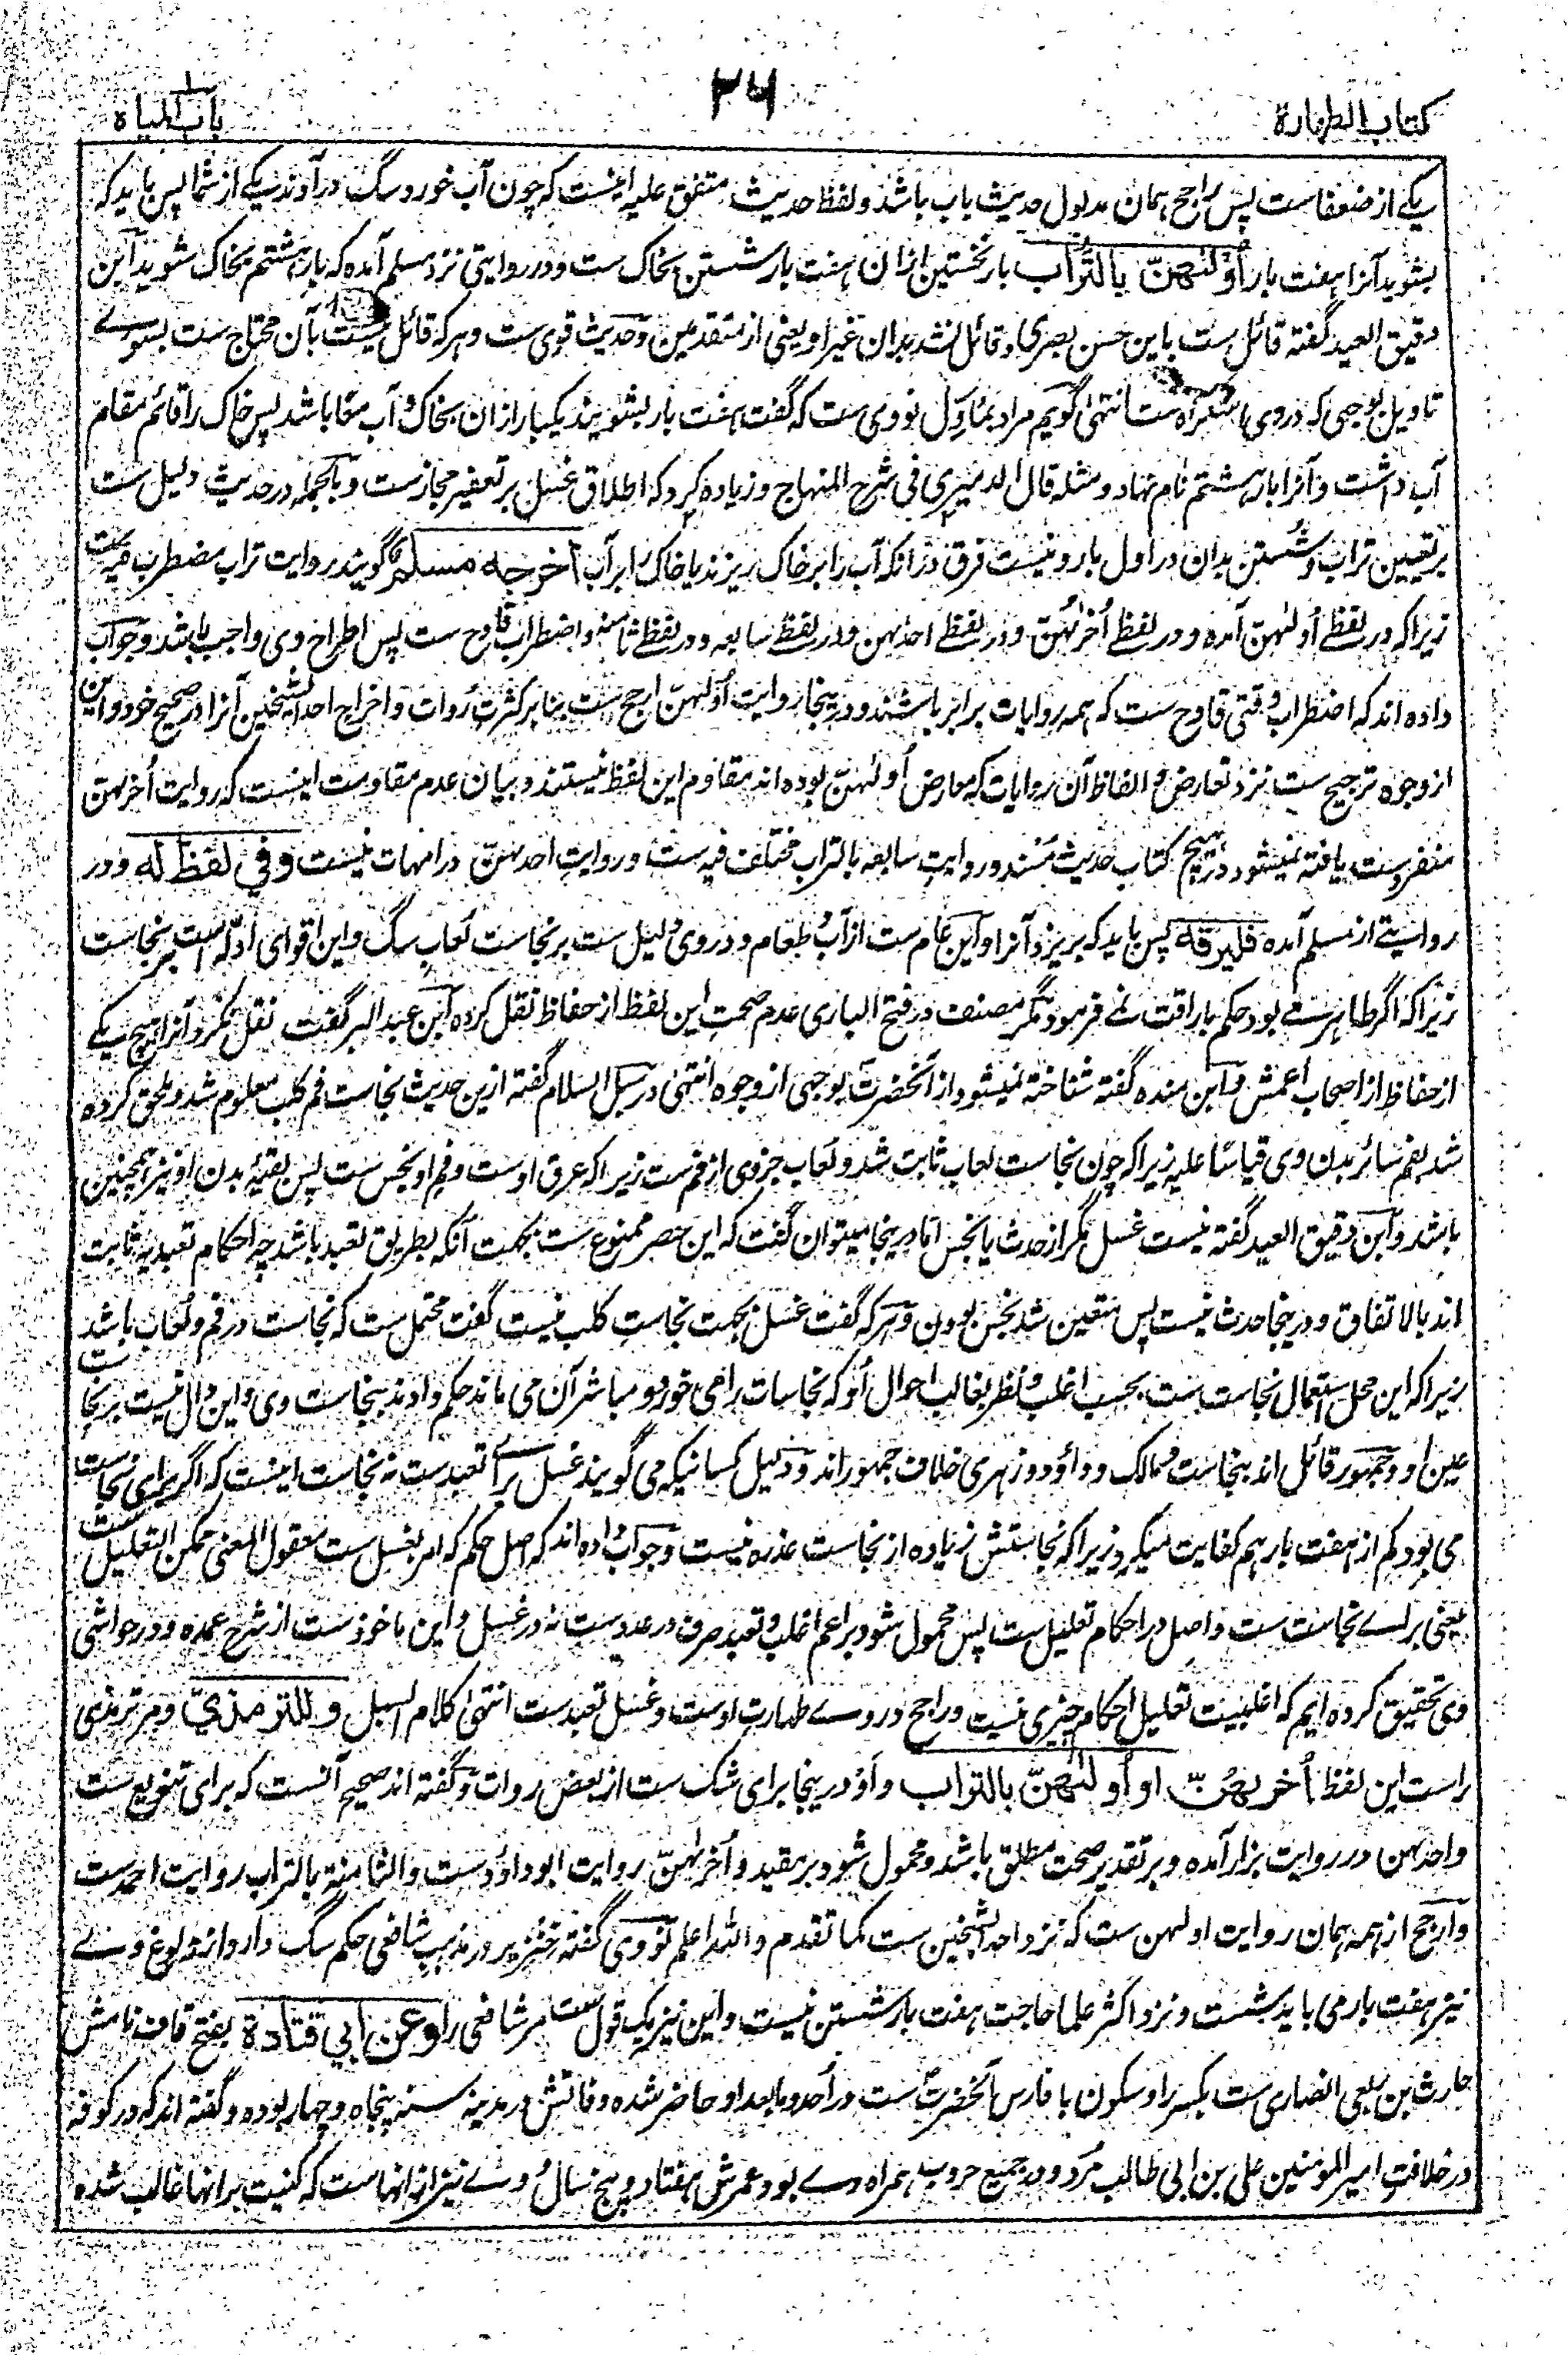 کتاب الطهارة
۳۶
باب المیاه
یکے از ضعفاست پس راجح همان مدلول حدیث باب باشد ولفظ حدیث متفق علیه اینست که چون آب خورد سگ در آوند یکے از شما پس باید که
بشوید آنرا هفت بار أُوْلٰهُنَّ بِالتُّرَابِ بار نخستین ازان هفت بار شستن بخاک ست و در روایتی نزد مسلم آمده که بار هشتم بخاک شوید ابن
دقیق العید گفته قائل ست باین حسن بصری و قائل نشد بدان غیر او یعنی از متقدمین وحدیث قوی ست و هر که قائل نیست بآن محتاج ست بسوے
تاویل بوجهی که در وی استکراه ست انتهی گویم مراد بمتاوِّل نووی ست که گفت هفت بار بشویند یکبار ازان بخاک و آب معا باشد پس خاک را قائم مقام
آب داشت و آنرا بار هشتم نام نهاد و مثله قال الدمیری فی شرح المنهاج و زیاده کرد که اطلاق غسل بر تعفیر مجازست و بالجمله در حدیث دلیل ست
بر تعیین تراب و شستن بدان در اول بار و نیست فرق در آنکه آب را بر خاک ریزند یا خاک را بر آب اخرجه مسلم گویند روایت تراب مضطرب فیه ست
زیرا که در لفظے أولٰهن آمده و در لفظے أخرٰهن و در لفظے احدٰهن و در لفظے سابعه و در لفظے ثامنه و اضطراب قادح ست پس اطراح وی واجب باشد و جواب
داده اند که اضطراب وقتی قادح ست که همه روایات برابر باشند و در ینجا روایت أولٰهن ارجح ست بنابر کثرت رُوات و اخراج احد الشیخین آنرا در صحیح خود و این
از وجوه ترجیح ست نزد تعارض و الفاظ آن روایات که معارض أولٰهنّ بوده اند مقاوم این لفظ نیستند و بیان عدم مقاومت اینست که روایت أخرٰهن
منفردست یافته نمیشود در هیچ کتاب حدیث مسند و روایت سابعه بالتراب مختلف فیه ست و روایت احدٰهنّ در امهات نیست وفی لفظ له و در
روایتے از مسلم آمده فلیرقه پس باید که بریزد آنرا و این عام ست از آب و طعام و در وی دلیل ست بر نجاست لعاب سگ و این اقوای ادلّه است بر نجاست
زیرا که اگر طاهر مے بود حکم باراقت نمے فرمود مگر مصنف در فتح الباری عدم صحت این لفظ از حفاظ نقل کرده ابن عبد البر گفت نقل نکرد آنرا هیچ یکے
از حفاظ از اصحاب اعمش و ابن منده گفته شناخته نمیشود از آنحضرت بوجهی از وجوه انتهی در سبل السلام گفته ازین حدیث نجاست فم کلب معلوم شد و ملحق کرده
شد بفم سائر بدن وی قیاسًا علیه زیرا که چون نجاست لعاب ثابت شد و لعاب جزوی از فم ست زیرا که عرق اوست و فم او نجس ست پس بقیهٔ بدن او نیز همچنین
باشد و ابن دقیق العید گفته نیست غسل مگر از حدث یا نجس اما در ینجا میتوان گفت که این حصر ممنوع ست بجهت آنکه بطریق تعبد باشد چه احکام تعبدیه ثابت
اند بالاتفاق و در ینجا حدث نیست پس متعین شد نجس بودن و هر که گفت غسل بجهت نجاست کلب نیست گفت محتمل ست که نجاست در فم و لعاب باشد
زیرا که این محل استعمال نجاست ست بحسب اغلب و نظر بغالب احوال او که نجاسات را می خورد و مباشر آن می ماند حکم دادند بنجاست وی و این دال نیست بر نجاست
عین او و جمهور قائل اند بنجاست و مالک و داؤد و زهری خلاف جمهور اند و دلیل کسانیکه می گویند غسل برائے تعبدست نه نجاست اینست که اگر برای نجاست
می بود کم از هفت بار هم کفایت میکرد زیرا که نجاستش زیاده از نجاست عذره نیست و جواب داده اند که اصل حکم که امر بغسل ست معقول المعنی ممکن التعلیل ست
یعنی براے نجاست ست و اصل در احکام تعلیل ست پس محمول شود بر اعم اغلب و تعبد صرف در عددست نه در غسل و این ماخوذست از شرح عمده و در حواشی
وی تحقیق کرده ایم که اغلبیت تعلیل احکام چیزی نیست و راجح در وے طهارت اوست و غسل تعبدست انتهی کلام السبل و للترمذیّ و مر ترمذی
راست این لفظ أُخرٰهُنّ او أُولٰهُنَّ بالتراب و أو در ینجا برای شک ست از بعض روات و گفته اند صحیح آنست که برای تنویع ست
واحدٰهن در روایت بزار آمده و بر تقدیر صحت مطلق باشد و محمول شود بر مقید و أخرٰهنّ روایت ابو داؤدست و الثامنة بالتراب روایت احمدست
و ارجح از همه همان روایت اولٰهن ست که نزد احد الشیخین ست کما تقدم و الله اعلم نووی گفته خنزیر در مذهب شافعی حکم سگ دارد از ولوغ وے
نیز هفت بار می باید شست و نزد اکثر علما حاجت هفت بار شستن نیست و این نیز یک قول ست مر شافعی را وعن ابی قتادة بفتح قاف نامش
حارث بن ربعی انصاری ست بکسر را و سکون با فارس آنحضرت ست در أحد و مابعد او حاضر شده و فاتش در مدینه سنه پنجاه و چهار بوده و گفته اند که در کوفه
در خلافت امیر المومنین علی بن ابی طالب مُرد و در جمیع حروب همراه وے بود عمرش هفتاد و پنج سال و وے نیز از انهاست که کنیت بر انها غالب شده